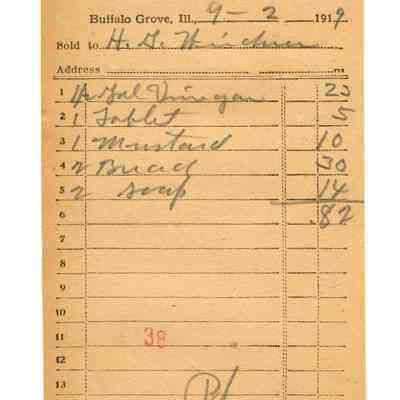 Buffalo Grove, Ill., 9-2 1919
Sold to H. G.
Address
1 Gal Vinegar 23
2 1 Tablet 5
3 1 Mustard 10
4 2 Bread 30
5 2 soap 14
6 .82
7
8
9
10
11 38
12
13 Pd